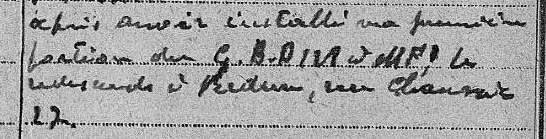 après avoir installé ma première
portion du G.B.D 121 à MF1 je
redescends à Verdun, rue Chaussée
27.